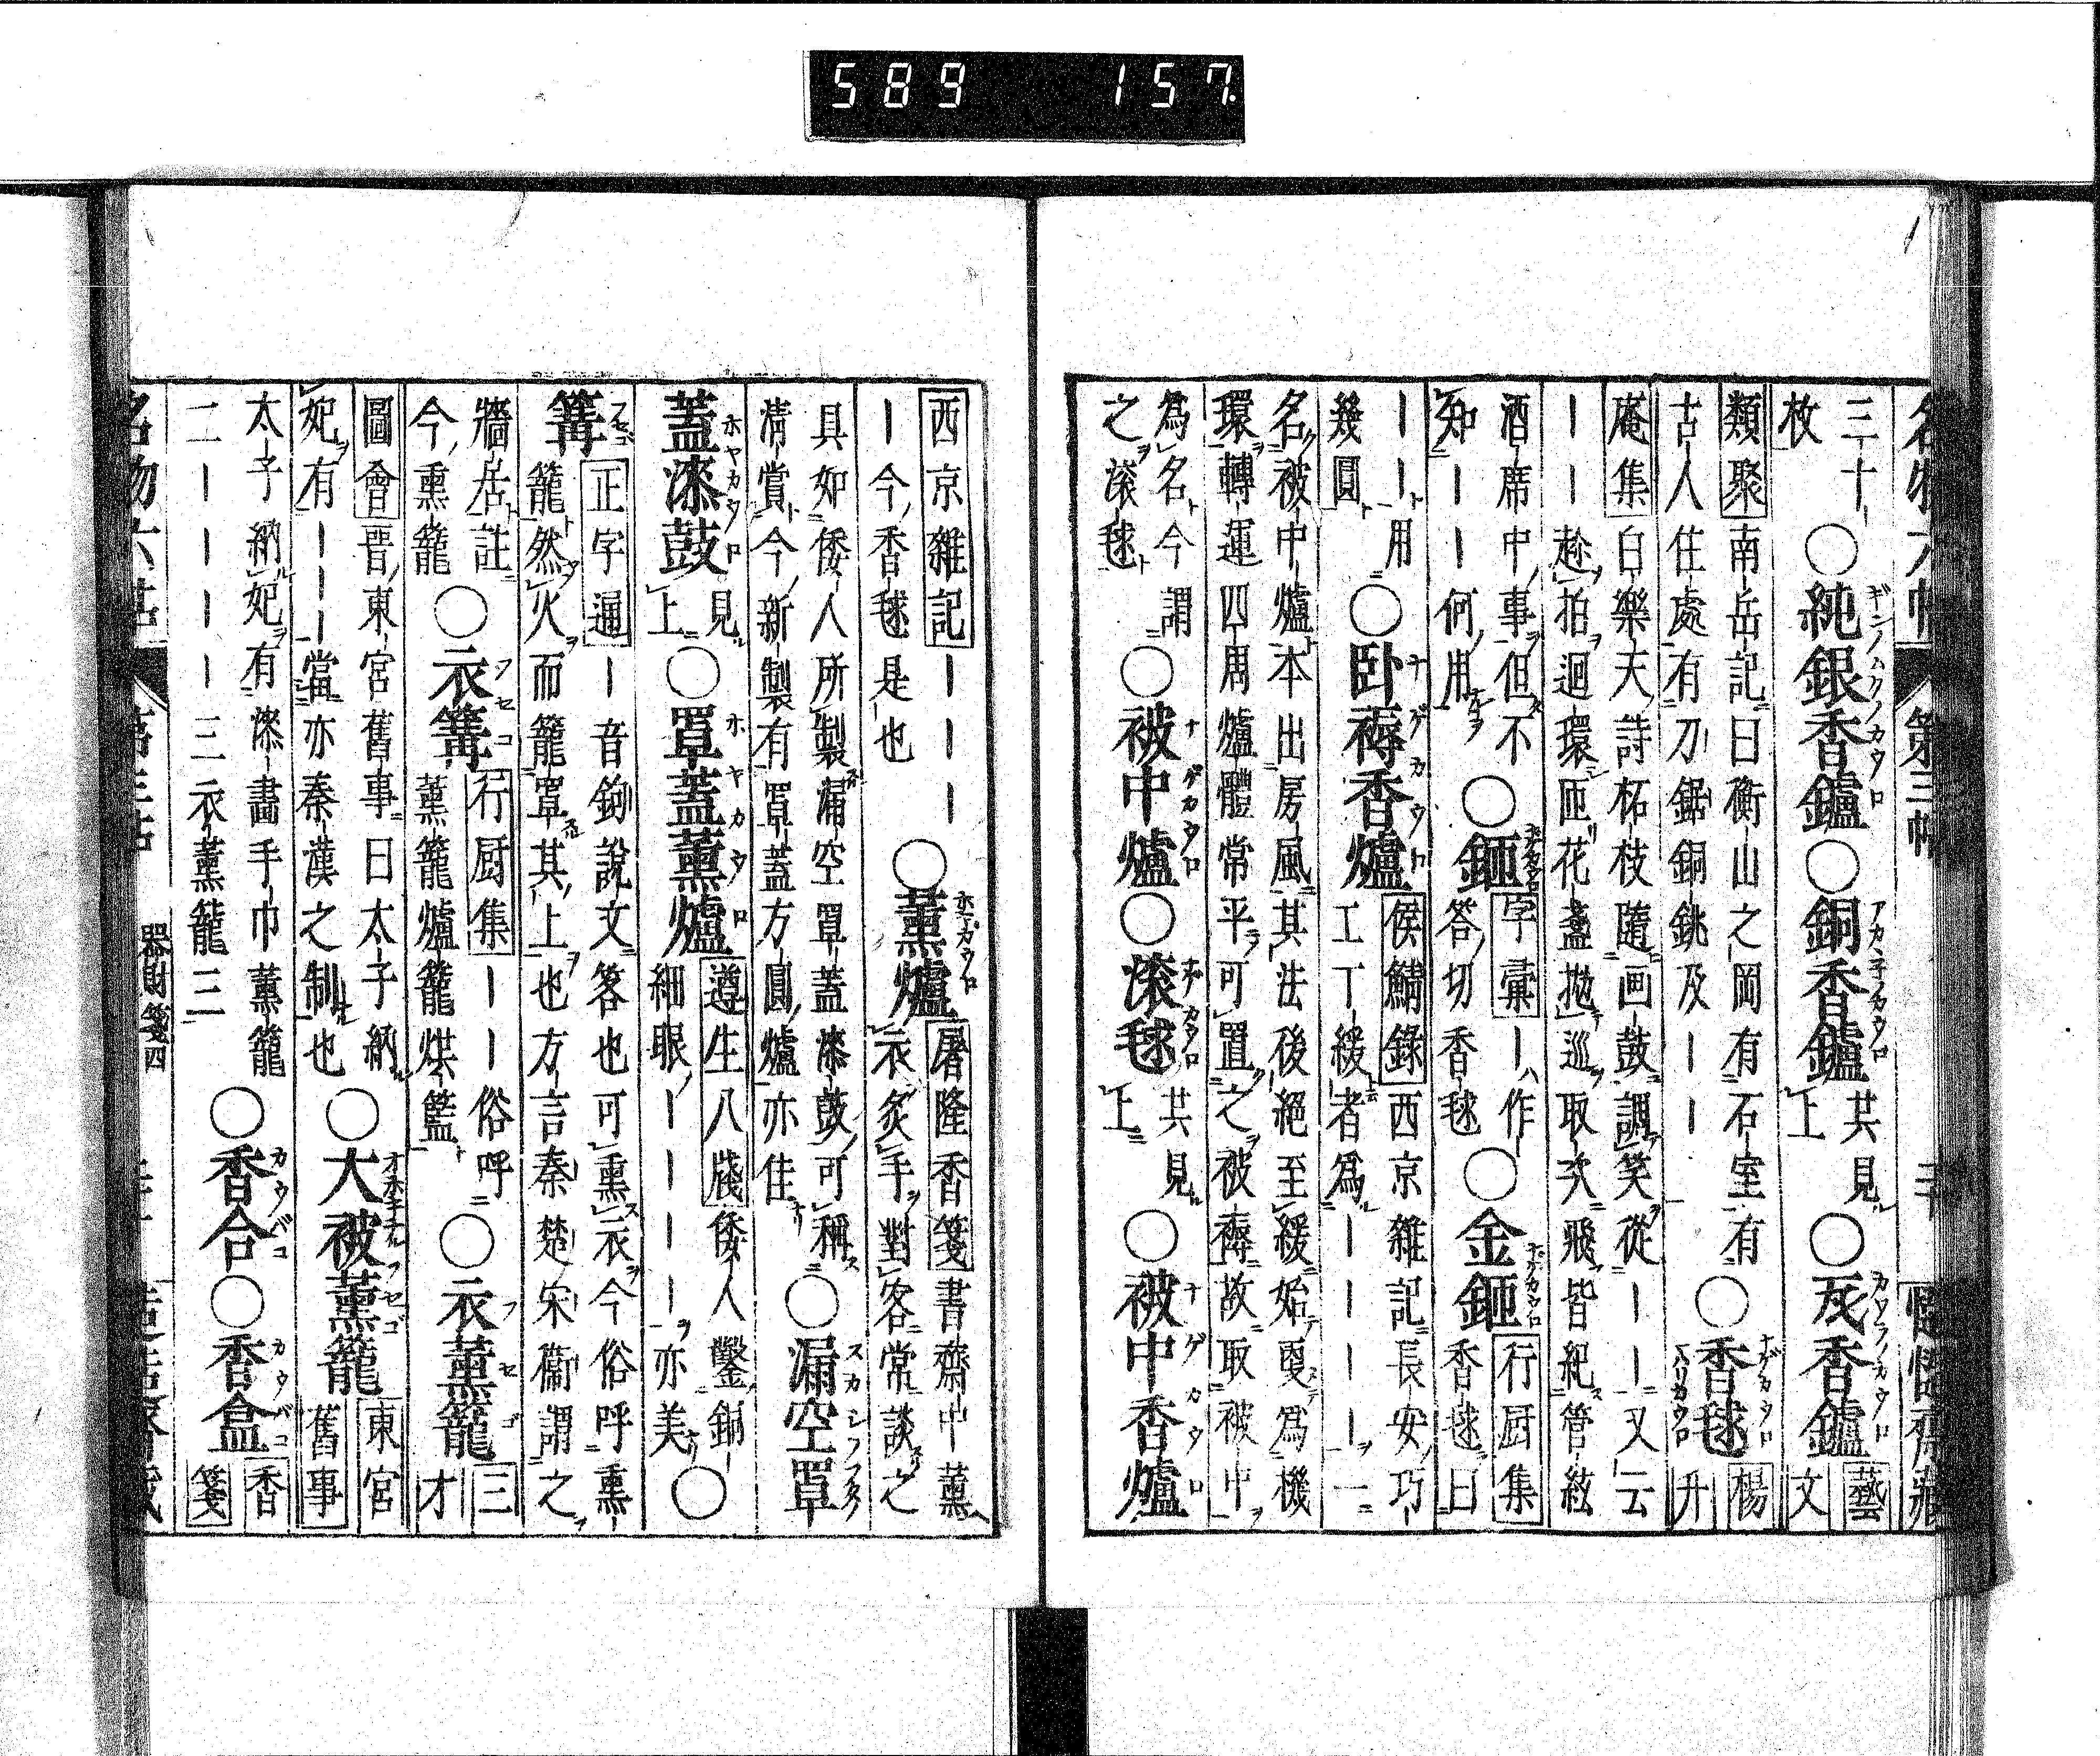 589 157
第三帖
三十
枚
○純銀香鑪○銅香鑪
共見
上
○瓦香鑪
藝
文
類聚南岳記曰衡山之岡有石室有
古人住處有刀鋸銅銚及――
○香毬
楊
升
庵集白樂天詩柘枝隨画鼓調笑從――又云
――趁拍迴環匝花盞抛巡取次飛皆紀管絃
酒席中事但不
知――何用
○鉔
字彙―作
答切香毬
○金鉔
行厨集
香毬曰
――用
幾圓
○臥褥香爐
侯鯖錄西京雜記長安巧
工丁緩者為――――一
名被中爐本出房風其法後絕至緩始更為機
環轉運四周爐體常平可置之被褥故取被中
為名今謂
之滾毬
○被中爐○滾毬
共見
上
○被中香爐
西京雜記――――
―今香毬是也
○薰爐
屠隆香箋書齋中薰
衣炙手對客常談之
具如倭人所製漏空罩蓋漆鼓可稱
清賞今新製有罩蓋方圓爐亦佳
○漏空罩
蓋漆鼓
見
上
○罩蓋薰爐
遵生八牋倭人鑿銅
細眼――――亦美
○
篝
正字通―音鉤說文客也可熏衣今俗呼熏
籠然火而籠罩其上也方言秦楚宋衞謂之
牆居註
今熏籠
○衣篝
行厨集――俗呼
薰籠爐籠烘籃
○衣薰籠
三
才
圖會晋東宮舊事曰太子納
妃有―――當亦秦漢之制也
○大被薰籠
東宮
舊事
太子納妃有漆畫手巾薰籠
二――――三衣薰籠三
○香合○香盒
香
箋
器財箋四